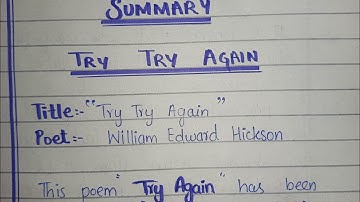 SUMMARY
TRY TRY AGAIN
Title:- "Try Try Again"
Poet:- William Edward Hickson
This poem "Try Again" has been